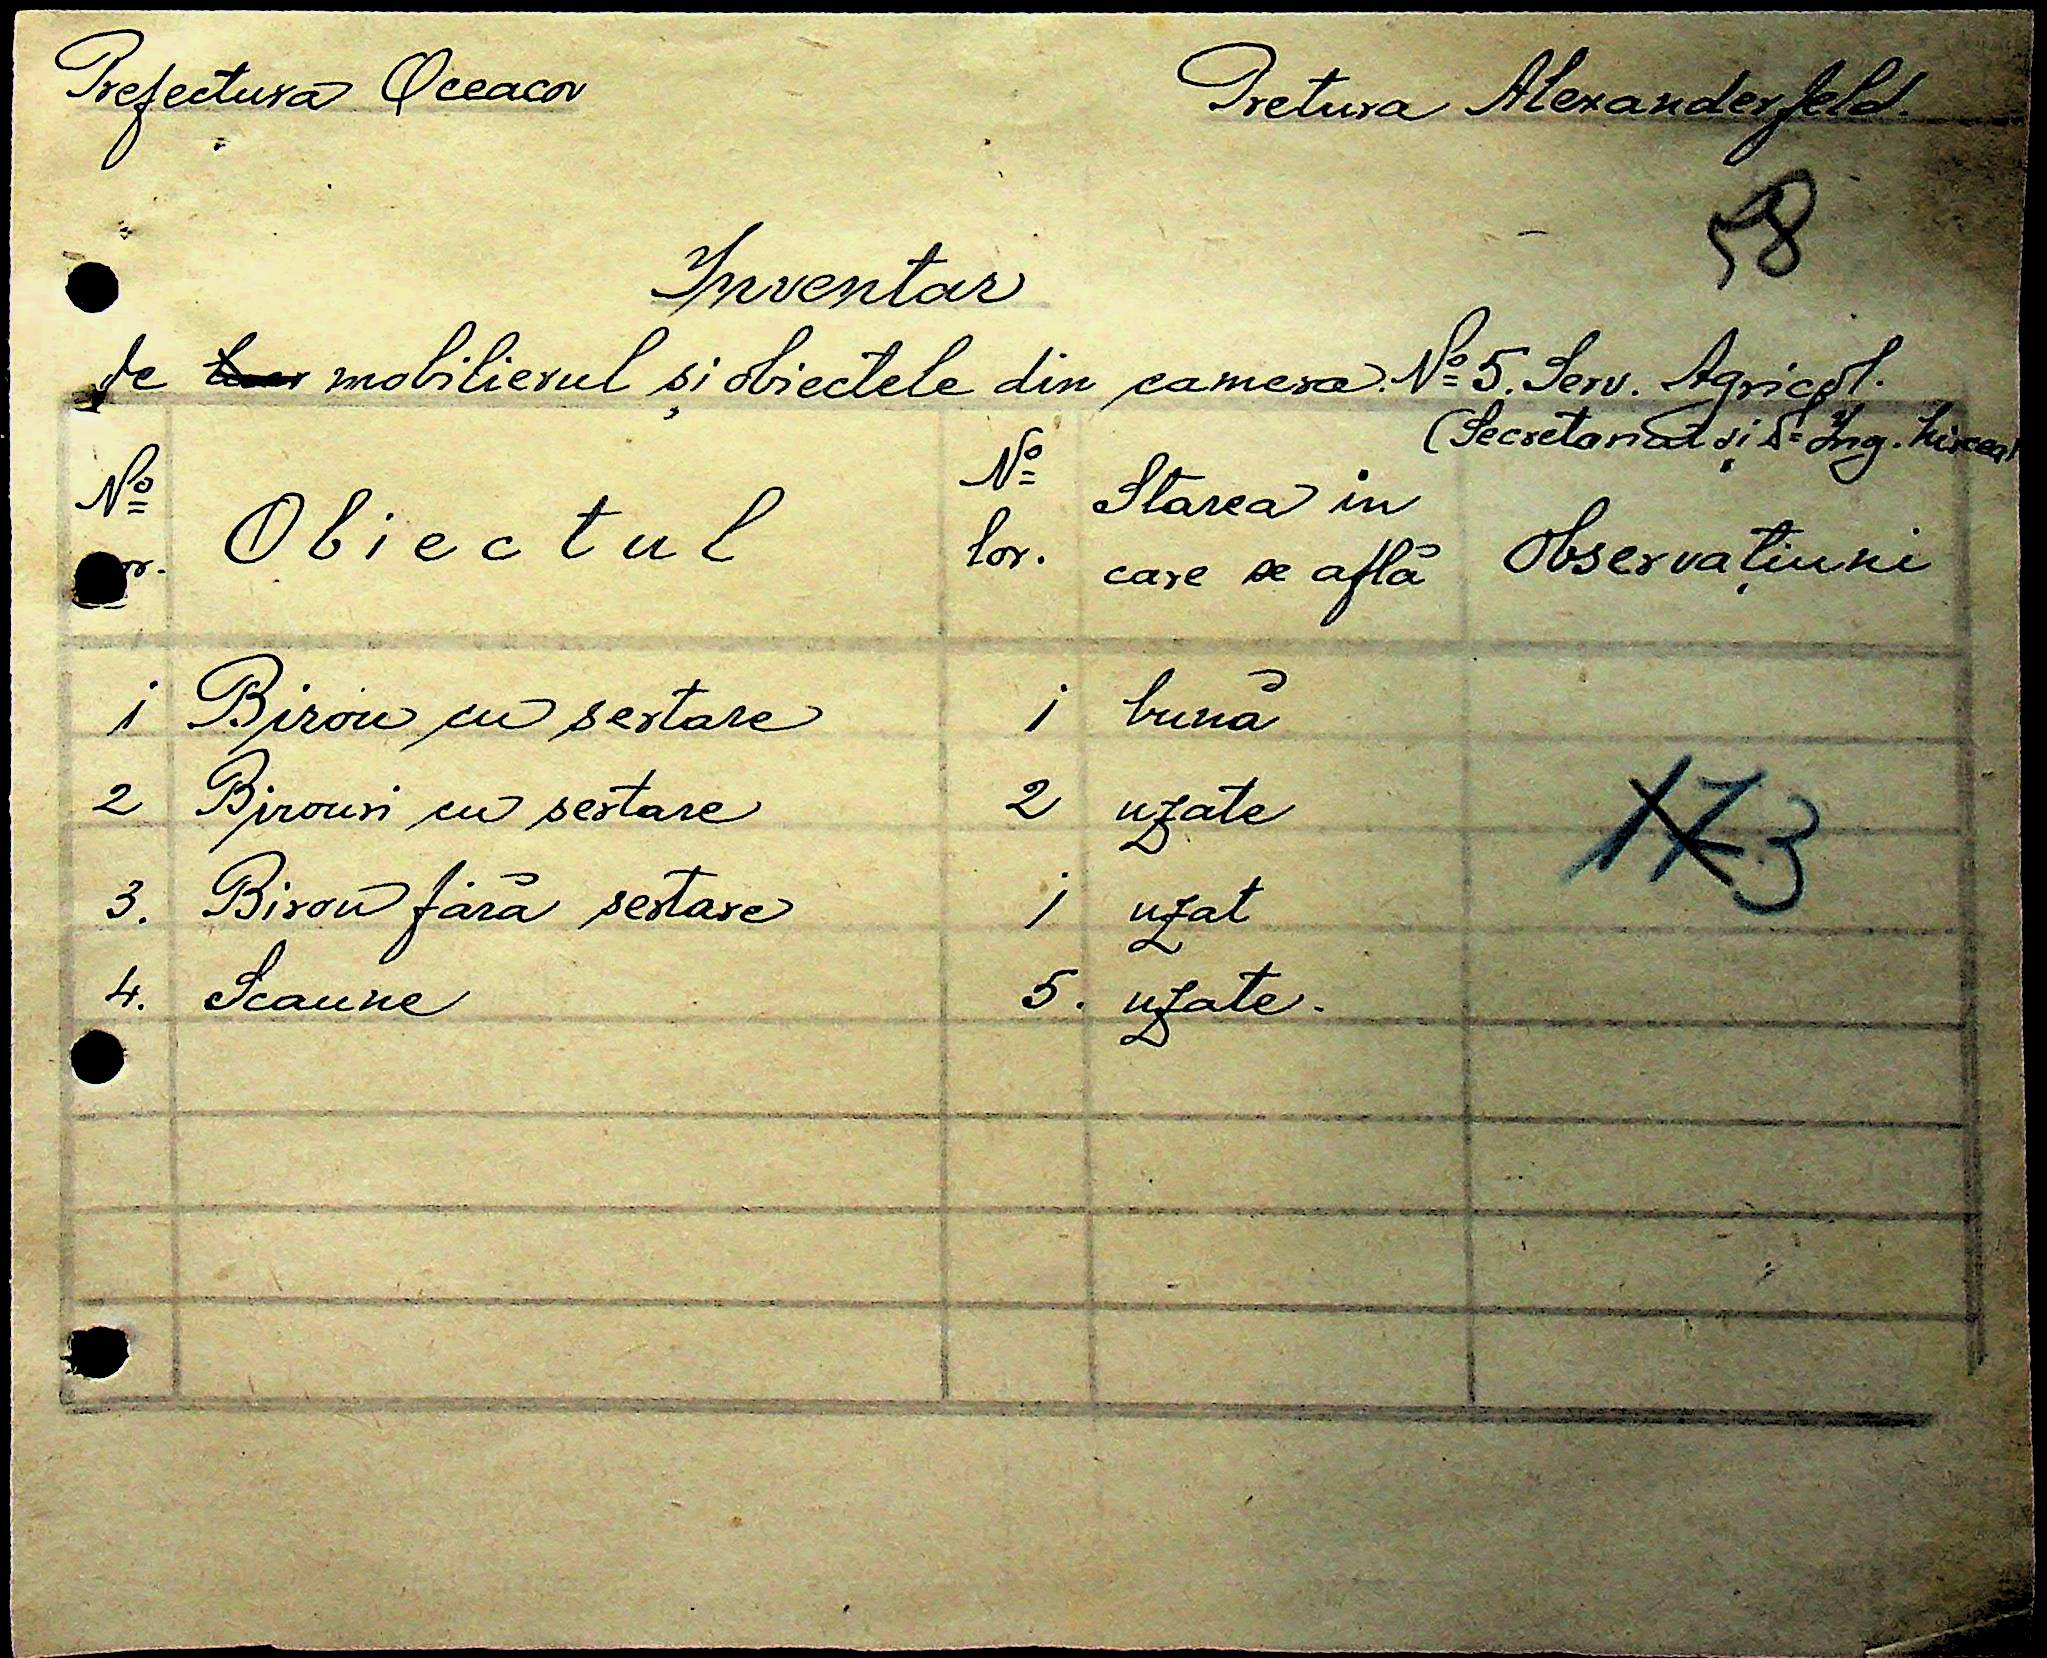 Prefectura Oceacov
Pretura Alexanderfeld.
58
Inventar
de mobilierul și obiectele din camera No 5. Serv. Agricol.
(Secretariat și D= Ing.
No
or.
Obiectul
No
lor.
Starea in
care se află
Observațiuni
1 Birou cu sertare 1 bună
2 Birouri cu sertare 2 uzate
3. Birou fără sertare 1 uzat
4. Scaune 5. uzate.
173